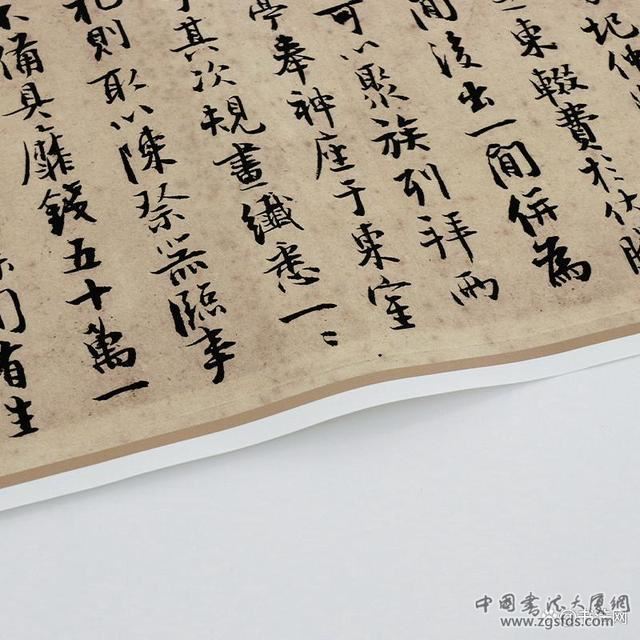 東輟費於伏臘
間後出一間併為
可以聚族列拜兩
亭奉神座于東室
其次規畫纖悉一二
礼則取以陳祭器臨事
不備具靡錢五十萬一
有生
中国书法大厦網
www.zgsfds.com